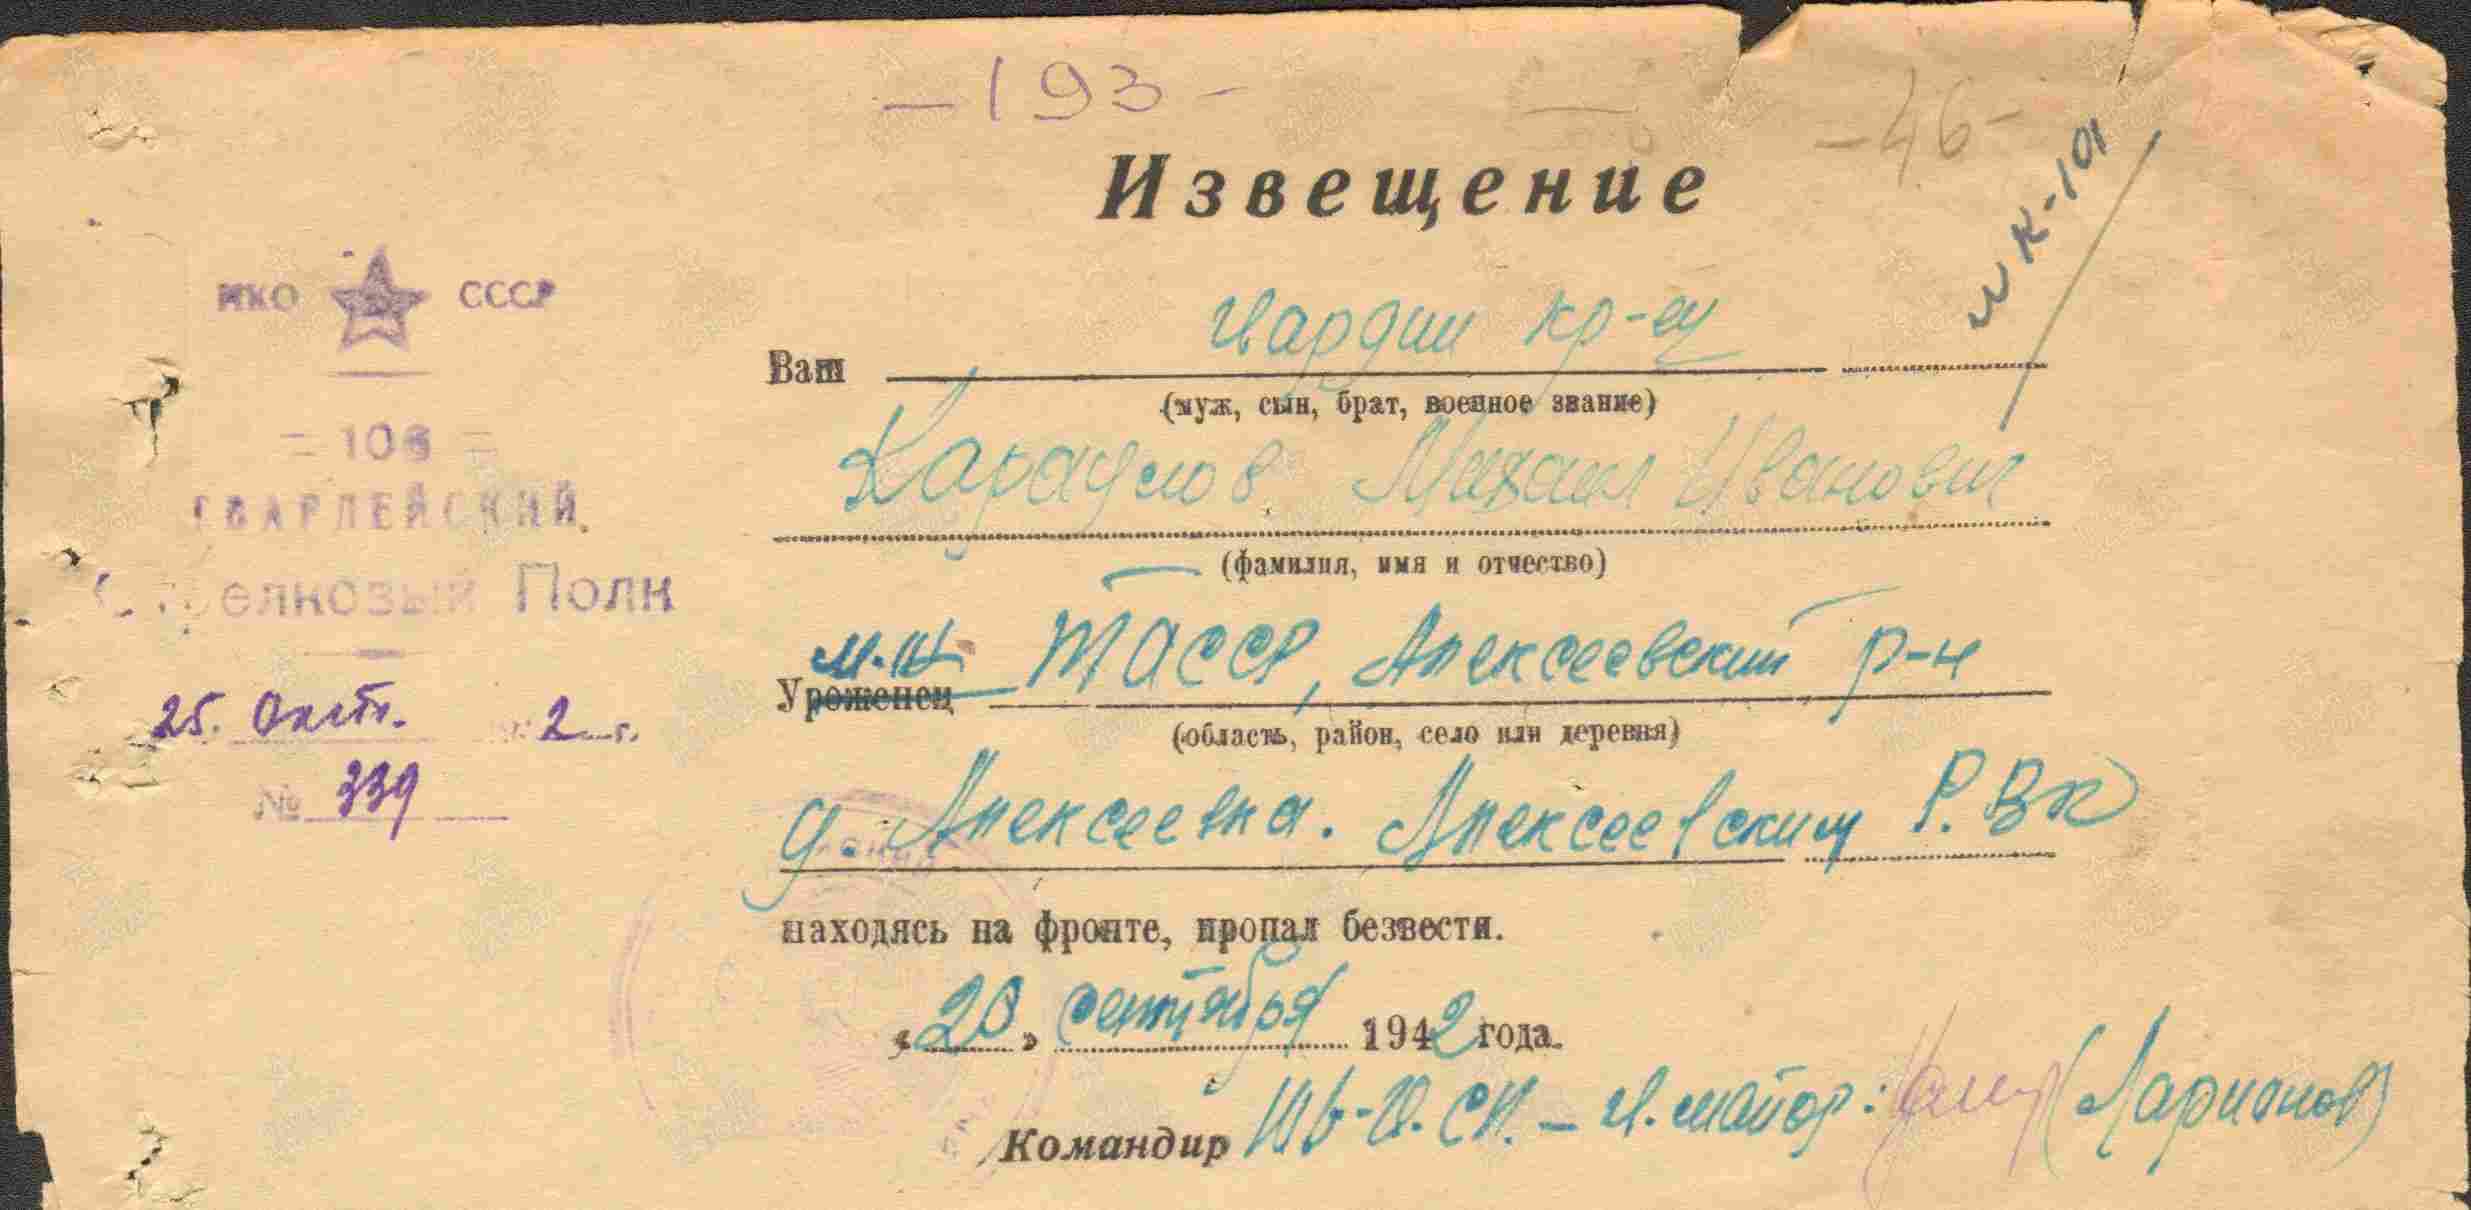 -193-
-46-
Извещение
НКО СССР
Ваш гвардии кр-ец
(муж, сын, брат, военное звание)
= 106 =
ГВАРДЕЙСКИЙ
Стрелковый Полк
Караулов Михаил Иванович
(фамилия, имя и отчество)
Уроженец ТАССР, Алексеевский р-н
(область, район, село или деревня)
25. Окт. 2 г.
№ 339
д. Алексеевка. Алексеевским Р.ВК
находясь на фронте, пропал безвести.
« 20 » сентября 1942 года.
Командир 106-Г.СП. - г. майор: (Ларионов)